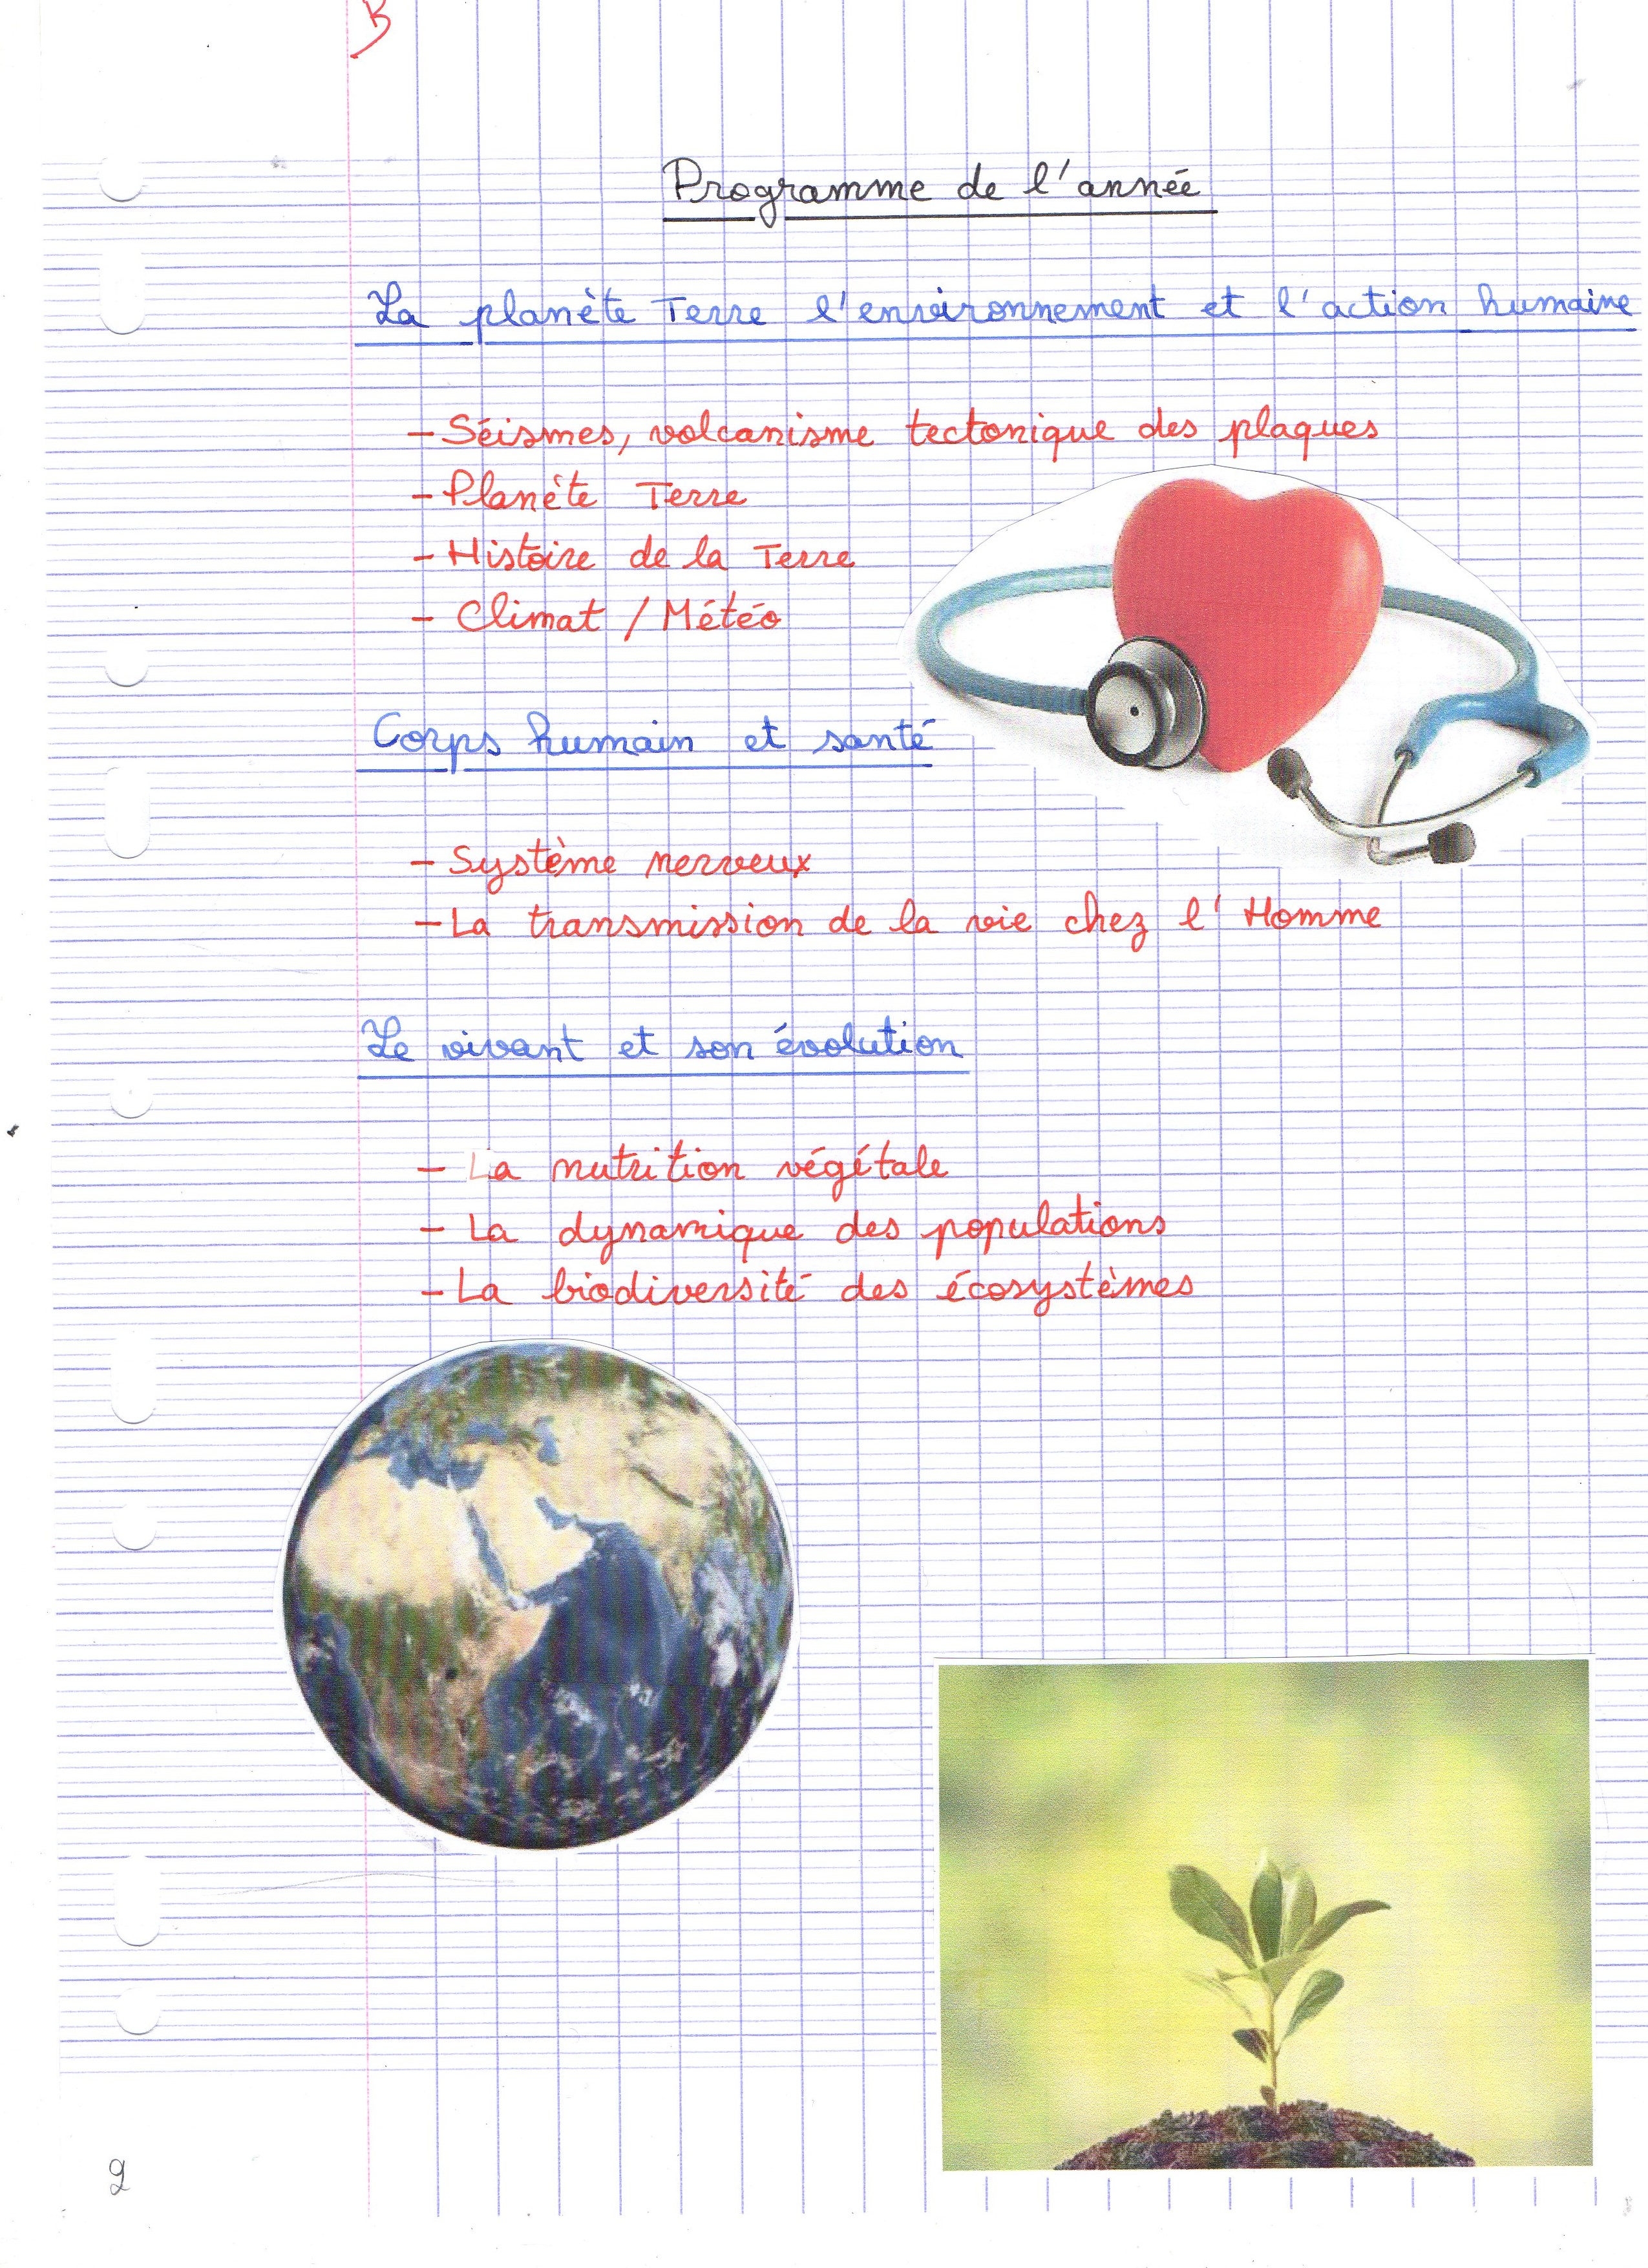 B
Programme de l'année
La planète Terre l'environnement et l'action humaine
- Séismes, volcanisme tectonique des plaques
- Planète Terre
- Histoire de la Terre
- Climat / Météo
Corps humain et santé
- Système nerveux
- La transmission de la vie chez l'Homme
Le vivant et son évolution
- La nutrition végétale
- La dynamique des populations
- La biodiversité des écosystèmes
2